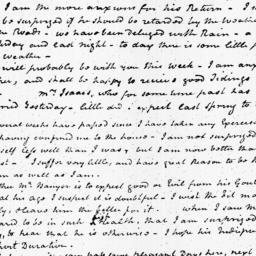 I am the more anxious for his Return - I
be surprized if he should be retarded by the Weather
Roads - we have been Deluged with Rain - a
day and last night - to day there is some little
weather -
will probably be with you this week - I am
and shall be happy to receive good Tidings
Mr. Isaacs, who for some time past has
ried Yesterday - little did I expect last Spring to
weeks have passed since I have taken any Exercise
having confined me to the house - I am not surprized
self less well than I was, but I am now better than
- I suffer very little, and have great Reason to be
am as well as I am.
Mr. Nanyer is to expect good or Evil from his Gout
at his age I suspect it is doubtful - I wish the
leave him the better for it. when I saw
to be in such Health, that I am surprized
to hear that he is otherwise - I hope his Indispo
short Duration.
pleasant Days here, next